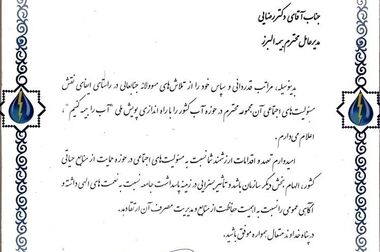 جناب آقای دکتر رضایی
مدیرعامل محترم بیمه البرز
بدینوسیله، مراتب قدردانی و سپاس خود را از تلاش‌های مسوولانه جنابعالی در راستای ایفای نقش
مسئولیت‌های اجتماعی آن مجموعه محترم در حوزه آب کشور با راه اندازی پویش ملی "آب را بیمه کنیم"،
اعلام می‌دارم.
امیدوارم تعهد و اقدامات ارزشمند شما نسبت به مسئولیت‌های اجتماعی در حوزه حمایت از منابع حیاتی
کشور، الهام بخش دیگر سازمان‌ها باشد و تأثیر بسزایی در زمینه پاسداشت جامعه نسبت به نعمت‌های الهی داشته و
آگاهی عمومی را نسبت به اهمیت حفاظت از منابع و مدیریت مصرف آن ارتقا دهد.
در پناه خداوند متعال همواره موفق باشید.